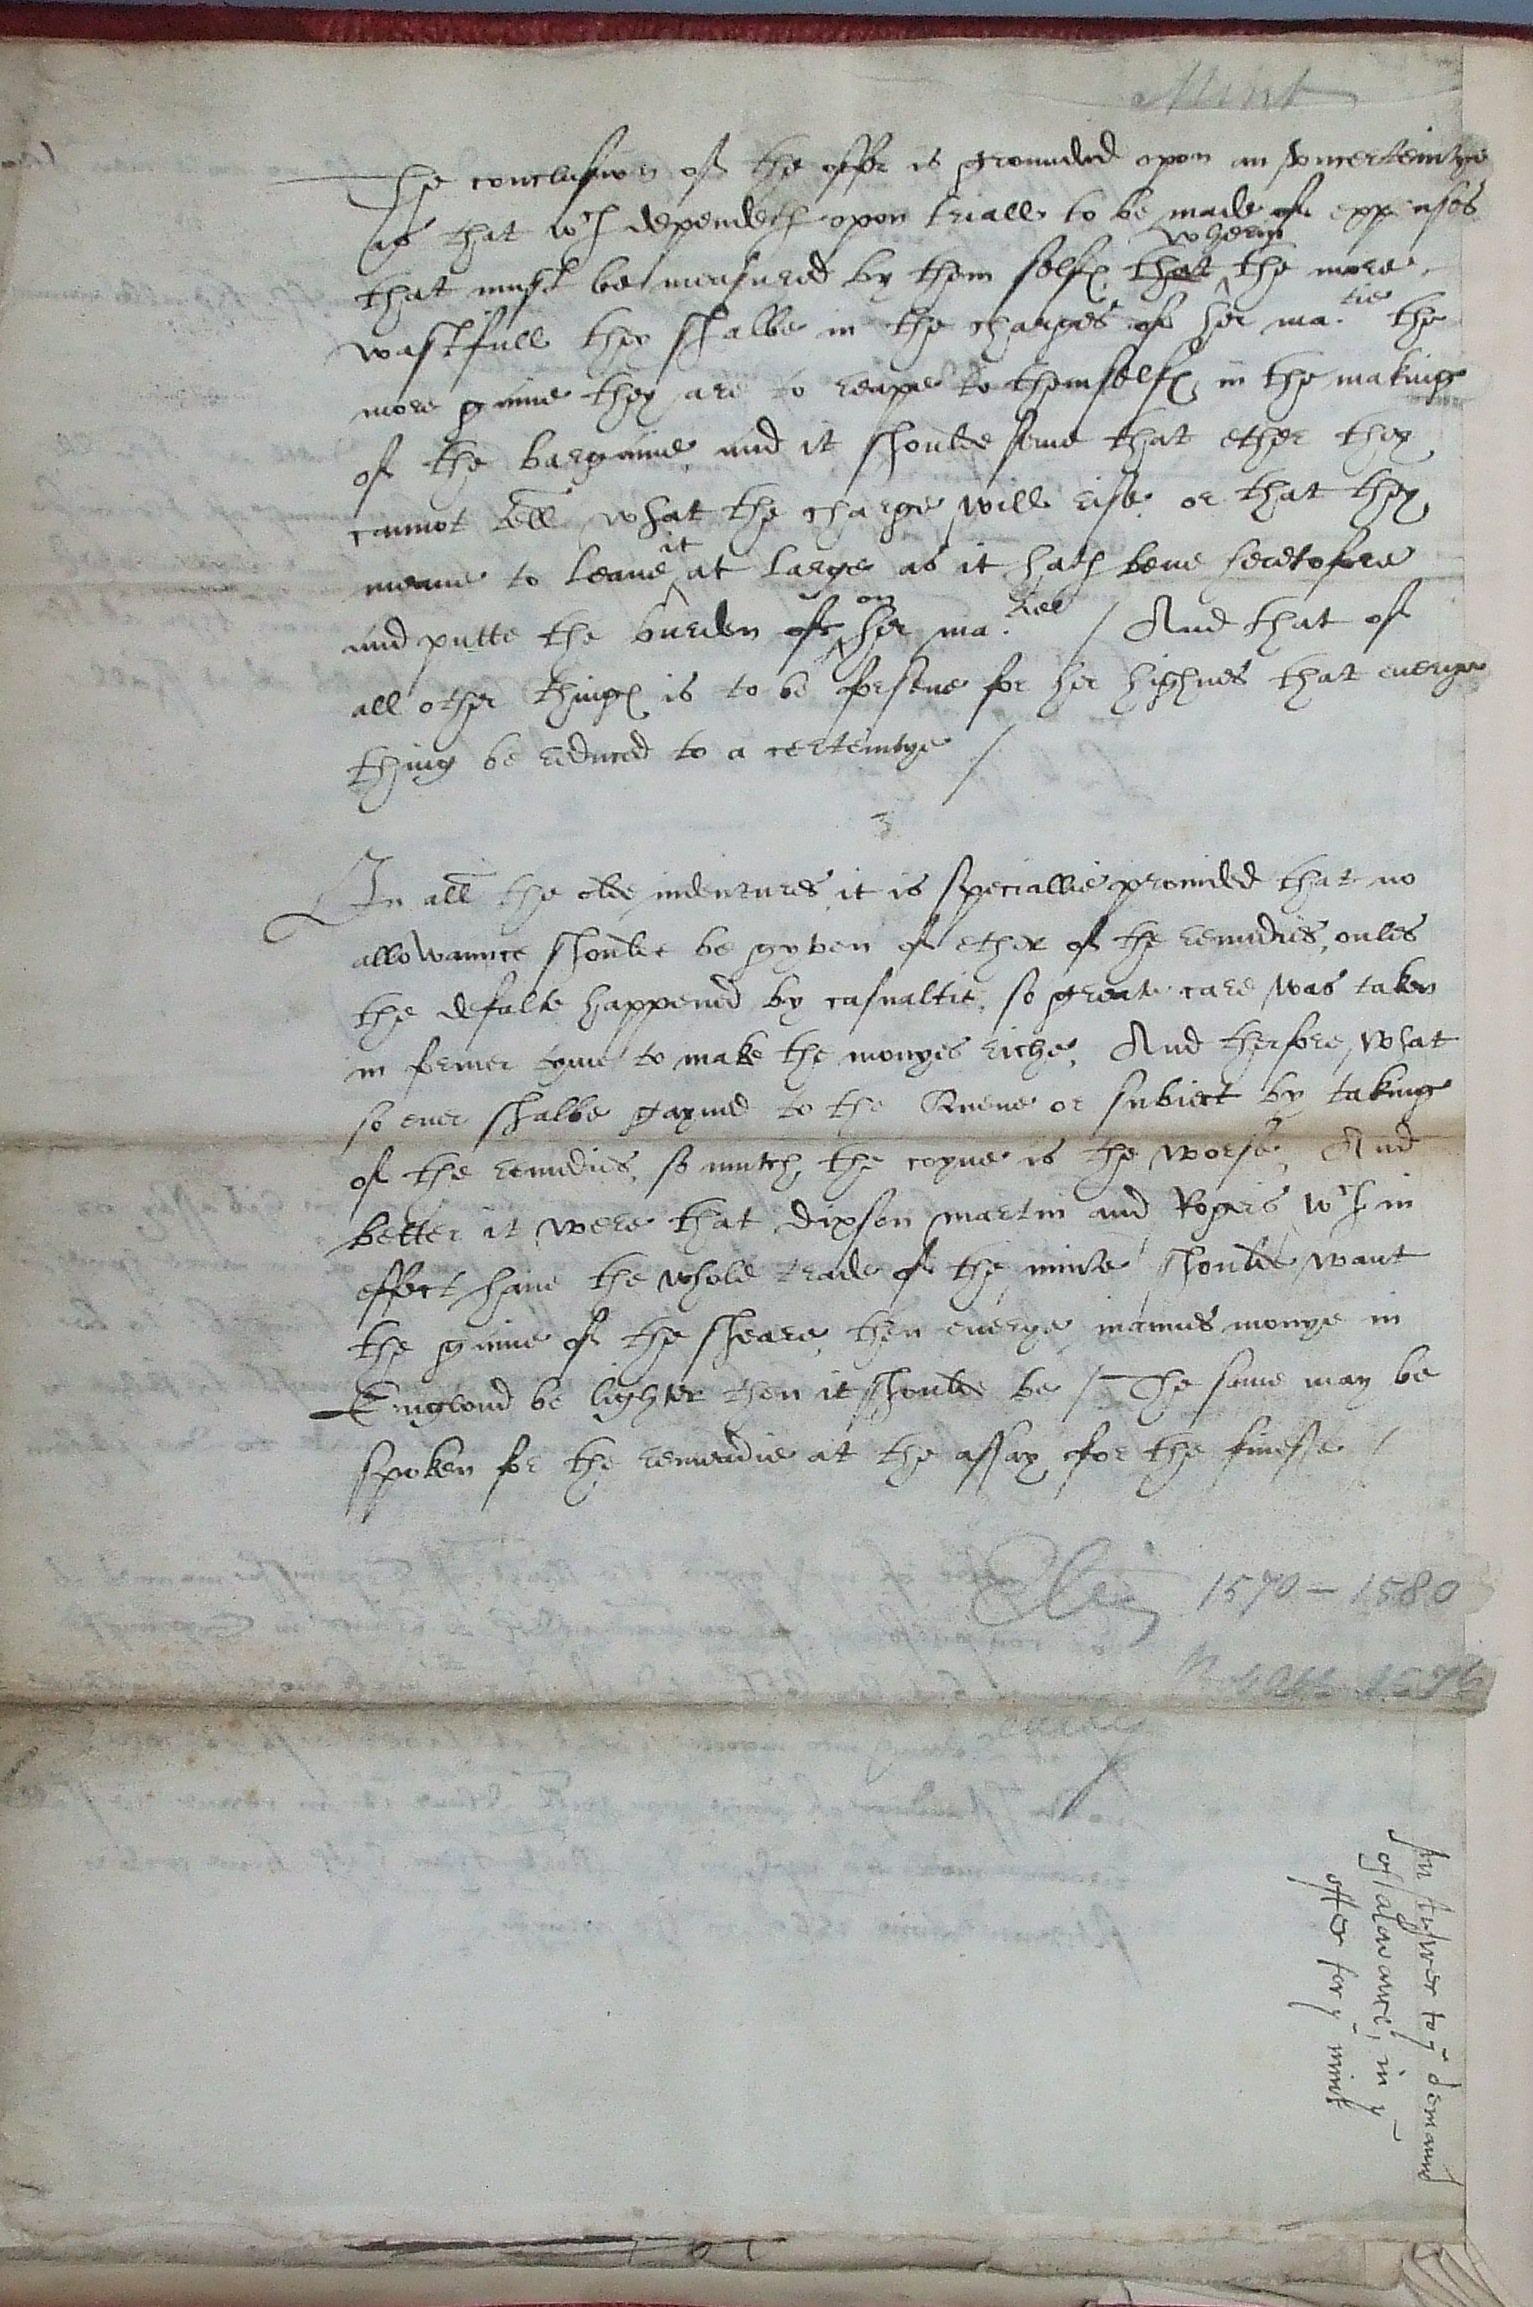 Mint
The conclusion of the offer is grounded opon an vncerteintye
as that wch dependeth opon triall to be made of expenses
that must be measured by them selfes, that wherin the more
wastfull they shalbe in the charges of her ma.tie the
more gaine they are to reape to themselfes in the making
of the bargaine, and it shoulde seme that ether they
cannot tell what the charge will rise or that they
meane to leaue it at large as it hath bene heretofore
and putte the burden of on her ma.tie / And that of
all other thinges is to be forsene for her highnes that euerye
thing be reduced to a certeintye /
In all the olde indentures it is speciallie prouided that no
allowaunce shoulde be gyven of ether of the remedies, onles
the defalte happened by casualtie, so great care was taken
in former tyme to make the monyes riche, And therfore what
so euer shalbe gayned to the Quene or subiect by taking
of the remedies, so mutch the coyne is the worse, And
better it were that Dixson Martin and Rogers wch in
effect haue the whole trade of the minte shoulde want
the gaine of the sheare, then euerye mannes monye in
Englond be lighter then it shoulde be / The same may be
spoken for the remeadie at the assay for the finesse /
Eliz 1570 - 1580
An answer to ye demaund
of alowance, in ye
offer for ye mint